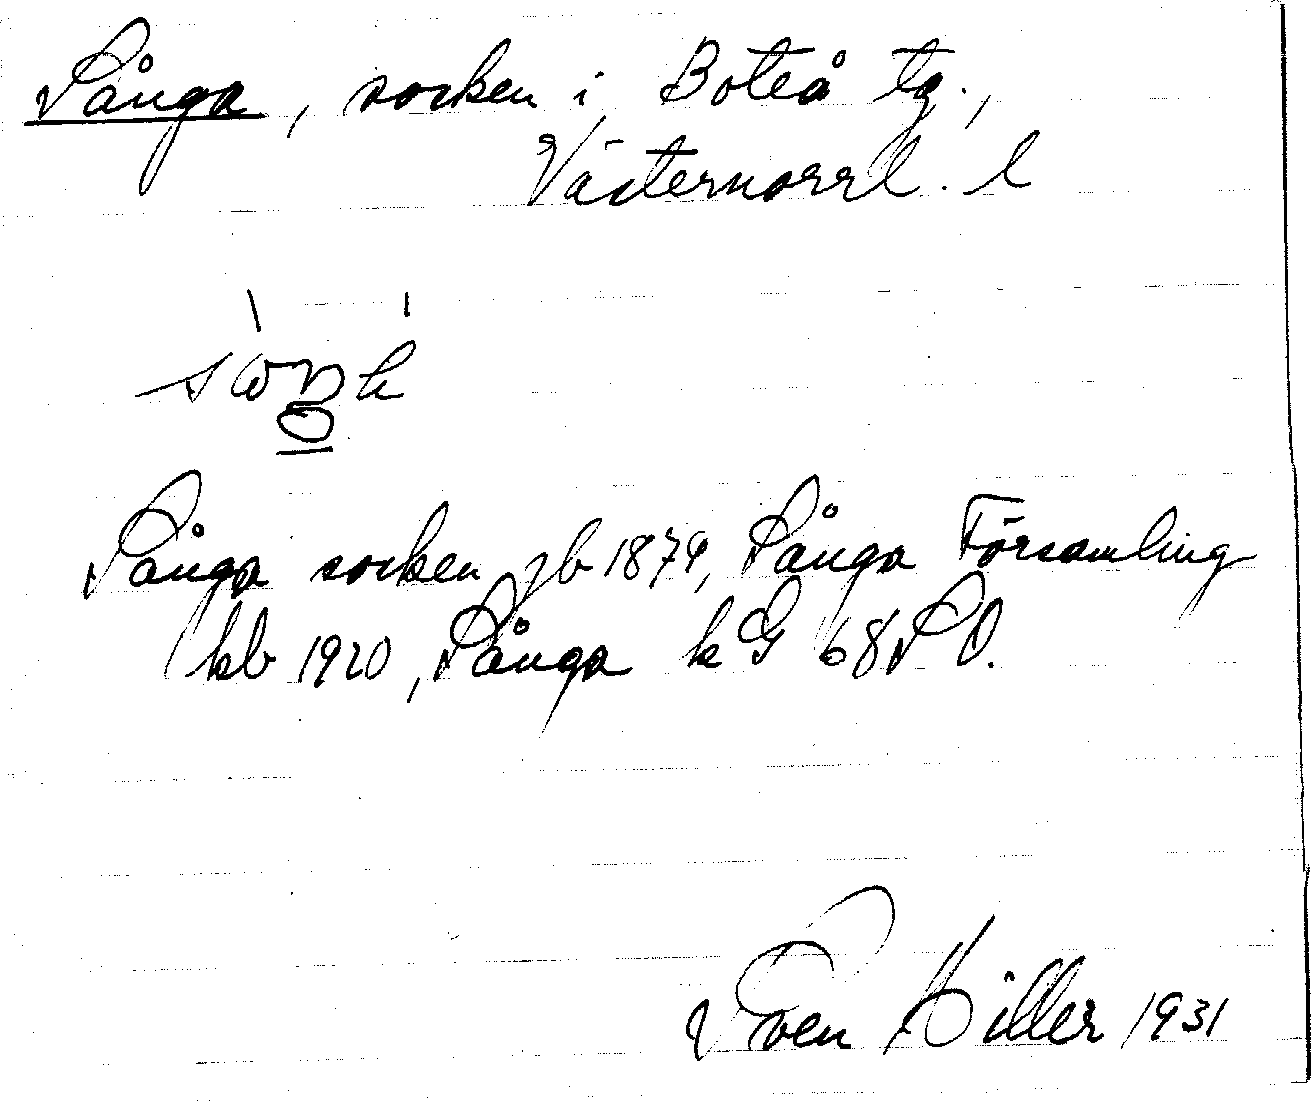 Sånga, socken i Boteå tg.,
Västernorrl. l
Sånga socken jb 1879, Sånga Församling
kb 1920, Sånga kG 68 SO.
Sven Hiller 1931